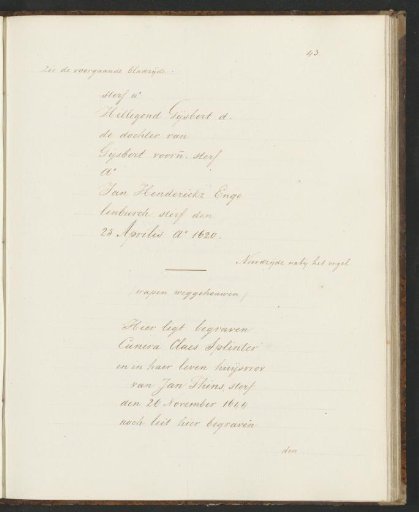 43
Zie de voorgaande bladzijde.
sterf aº
Hillegond Gijsbert d.
de dochter van
Gijsbert voorn. sterf
Aº
Jan Henderickz Enge
lenburch sterf den
23 Aprilis Aº 1620.
Noordzijde naby het orgel
(wapen weggehouwen)
Hier legt begraven
Cunera Claes Splinter
en in haer leven huijsvrov
van Jan Thins sterf
den 26 November 1644
noch leit hier begraven
den